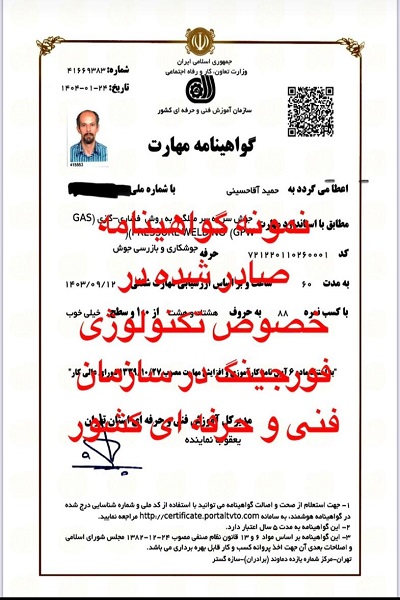 جمهوری اسلامی ایران
وزارت تعاون، کار و رفاه اجتماعی
سازمان آموزش فنی و حرفه ای کشور
شماره: ۴۱۶۶۹۳۸۳
تاریخ: ۱۴۰۴-۰۱-۲۴
گواهینامه مهارت
اعطا می گردد به حمید آقاحسینی با شماره ملی
مطابق با استاندارد مهارت جوش سربه سر میلگرد به روش فشاری-گازی (GAS
PRESSURE WELDING (GPW)(
کد ۷۲۱۲۲۰۱۱۰۲۶۰۰۰۱ حرفه جوشکاری و بازرسی جوش
به مدت ۶۰ ساعت و بر اساس ارزشیابی مهارت شغلی ۱۴۰۳/۰۹/۱۲
با کسب نمره ۸۸ به حروف هشتاد و هشت از ۱۰۰ و سطح خیلی خوب
مدیر کل آموزش فنی و حرفه ای استان تهران
یعقوب نماینده
نمونه گواهینامه
صادر شده در
خصوص تکنولوژی
فورجینگ در سازمان
فنی و حرفه ای کشور
۱- جهت استعلام از صحت و اصالت گواهینامه می توانید با استفاده از کد ملی و شماره شناسایی درج شده
در گواهینامه هوشمند، به سامانه http://certificate.portaltvto.com مراجعه نمایید.
۲- این گواهینامه به مدت ۵ سال اعتبار دارد.
۳- این گواهینامه بر اساس مواد ۶ و ۱۳ قانون نظام صنفی مصوب ۲۴-۱۲-۱۳۸۲ مجلس شورای اسلامی
و اصلاحات بعدی آن جهت اخذ پروانه کسب و کار قابل بهره برداری می باشد.
تهران-مرکز شماره یازده دماوند (برادران)-سازه گستر